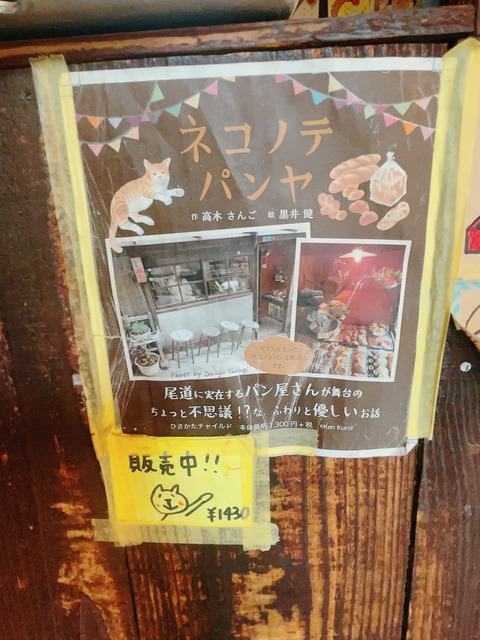 ネコノテ
パンヤ
作 高木 さんご 絵 黒井 健
Photo by Sango Takagi
モデルとなった
ネコノテパン工場さん
です。
尾道に実在するパン屋さんが舞台の
ちょっと不思議!?な、ふわりと優しいお話
ひさかたチャイルド 本体価格1,300円+税 ©Ken Kuroi
販売中!!
¥1430